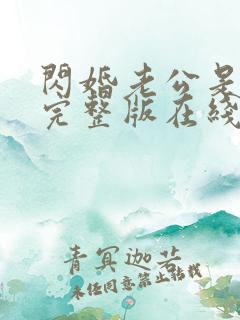 閃婚老公是
完整版在綫
青冥迦若
未經同意禁止轉載